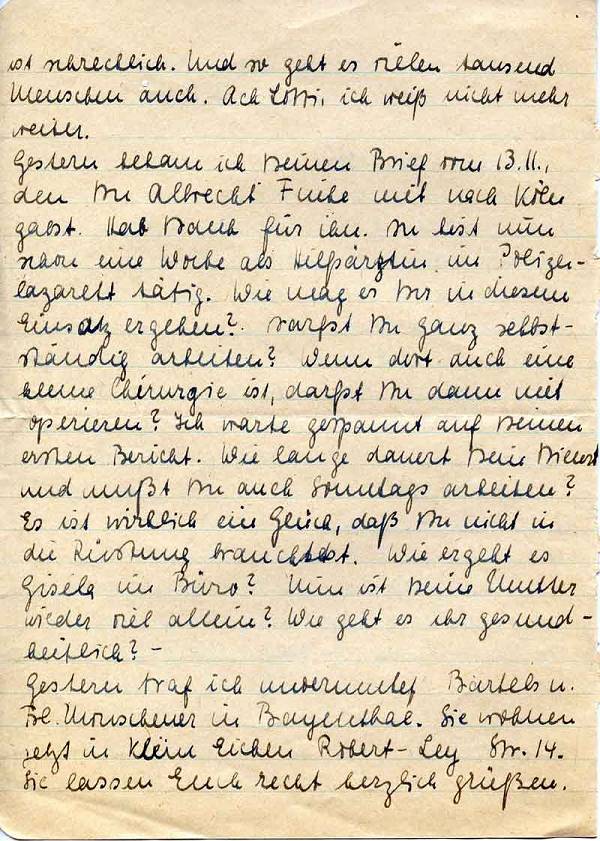 ist schrecklich. Und so geht es vielen tausend
Menschen auch. Ach Lotti, ich weiß nicht mehr
weiter.
Gestern bekam ich Deinen Brief vom 13.11.,
den Du Albrecht mit nach Köln
gabst. Hab Dank für ihn. Du bist nun
schon eine Woche als Hilfsärztin im Polizei-
lazarett tätig. Wie mag es Dir in diesem
Einsatz ergehen? Darfst Du ganz selbst-
ständig arbeiten? Wenn dort auch eine
kleine Chirurgie ist, darfst Du dann mit
operieren? Ich warte gespannt auf Deinen
ersten Bericht. Wie lange dauert Dein Dienst
und mußt Du auch Sonntags arbeiten?
Es ist wirklich ein Glück, daß Du nicht in
die Rüstung brauchtest. Wie ergeht es
Gisela im Büro? Nun ist Deine Mutter
wieder viel allein? Wie geht es ihr gesund-
heitlich? -
Gestern traf ich unvermutet Bartels u.
Frl. in Bayenthal. Sie wohnen
jetzt in Klein Eichen Robert-Ley Str. 14.
Sie lassen Euch recht herzlich grüßen.